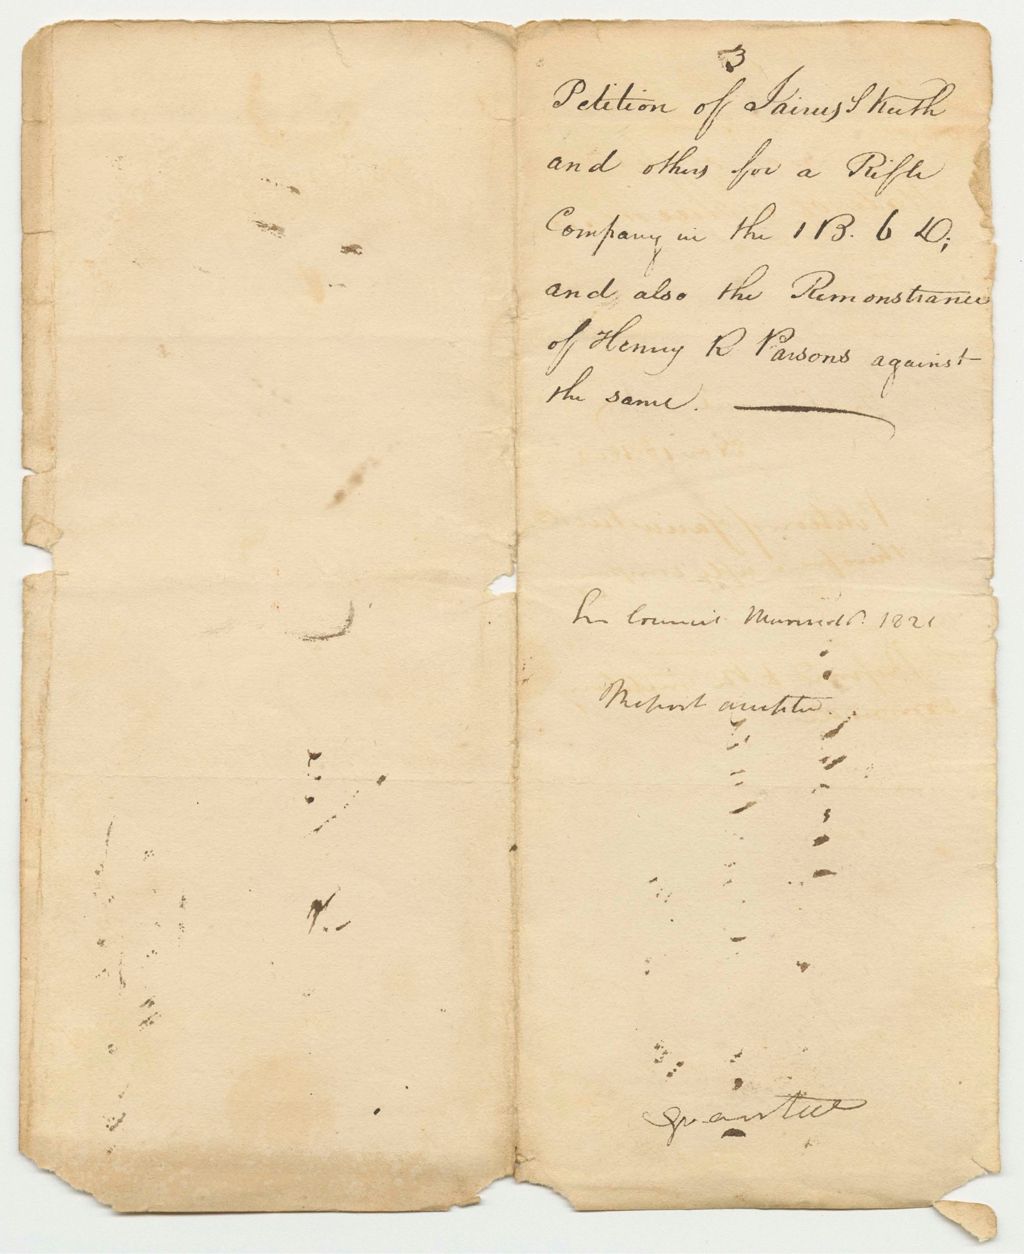 3
Petition of Jairus S Keith
and others for a Rifle
Company in the 1 B. 6 D;
and also the Remonstrance
of Henry K Parsons against
the same.
In Council 1821
Report accepted.
granted